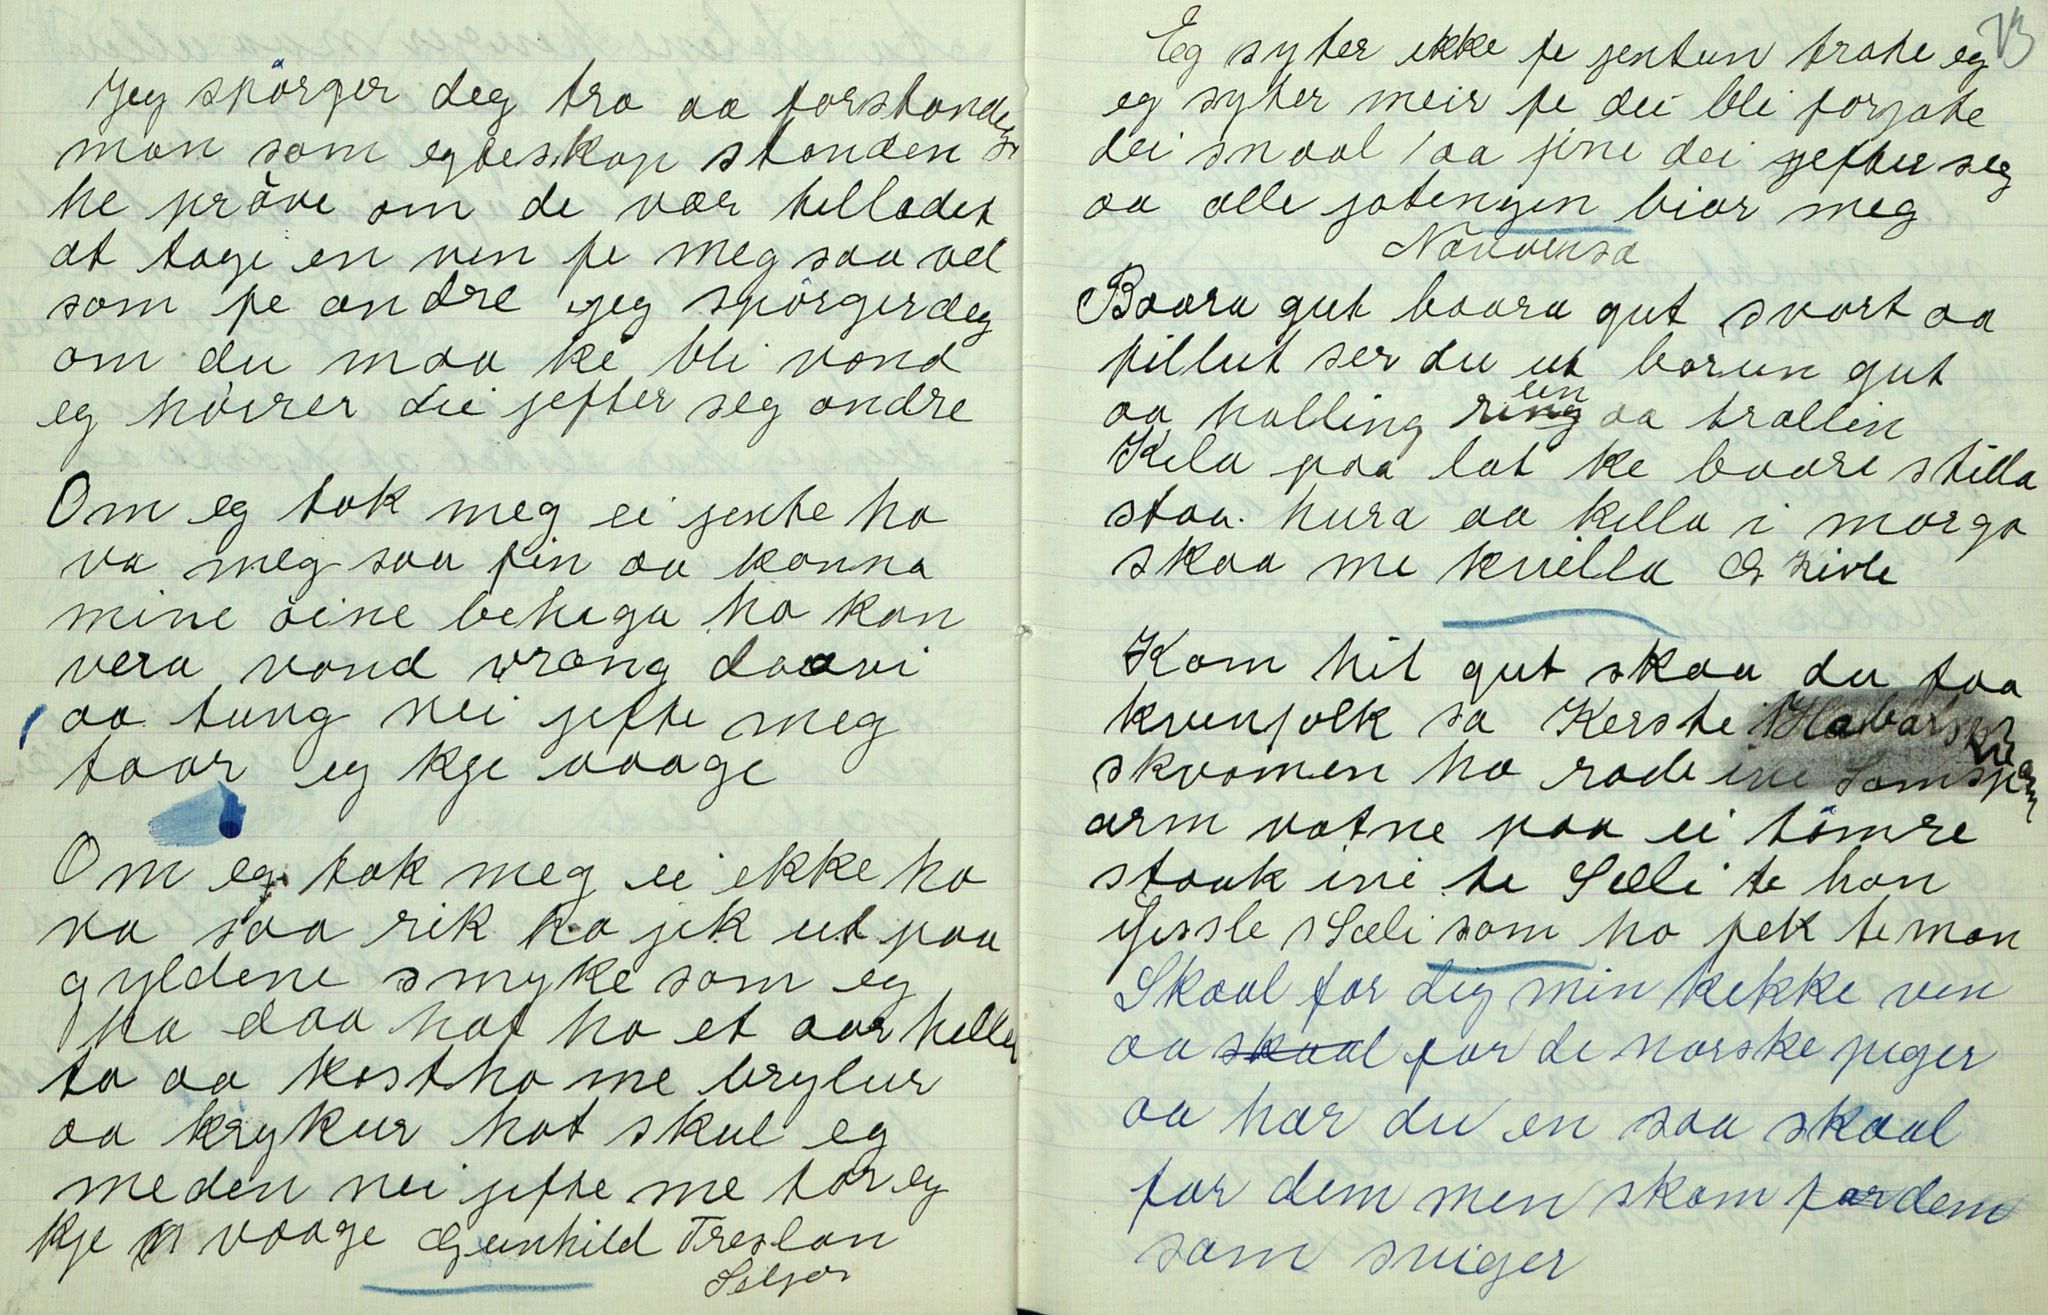 Jeg spörger deg tra aa forstandig
man som egteskap standen
he pröve om de vær tilladet
at tage en ven fe meg saa vel
som fe andre jeg spörger deg
om du maa ke bli vond
eg höirer dei jefter seg andre
Om eg tok meg ei jente ho
va meg saa fin aa konna
mine öine behaga ho kan
vera vond vrang daavi
aa tung nei jefte meg
taar eg kje vaage
Om eg tok meg ei ekke ho
va saa rik ho jek ut paa
gyldene smyke som eg
ha daa hat ho et aar helle
to aa kost ho me brylur
aa krykur hat skul eg
me den nei jefte me tor eg
kje vaage Gunhild Treslan
Seljor
73
Eg syter ikke fe jentun trote eg
eg syter meir fe dei bli forjate
dei snaal aa fine dei jefter seg
aa alle jotengen biar meg
Nauvensa
Baara gut baara gut svart aa
fillut ser du ut barun gut
aa halling ring un aa trallin
Kila paa lat ke baare stilla
staa. hura aa killa i morga
skaa me kvilla G Kivle
Kom hit gut skaa du faa
kvenfolk sa Kerste Havarsg
skvomen ho rode ini Somsje
arm vatne paa ei tömre
staak ini te Selli te han
Gissle Seli som ho fek te man
Skaal for dig min kekke ven
aa skaal for de norske piger
aa har du en saa skaal
for dem men skam for dem
som sviger